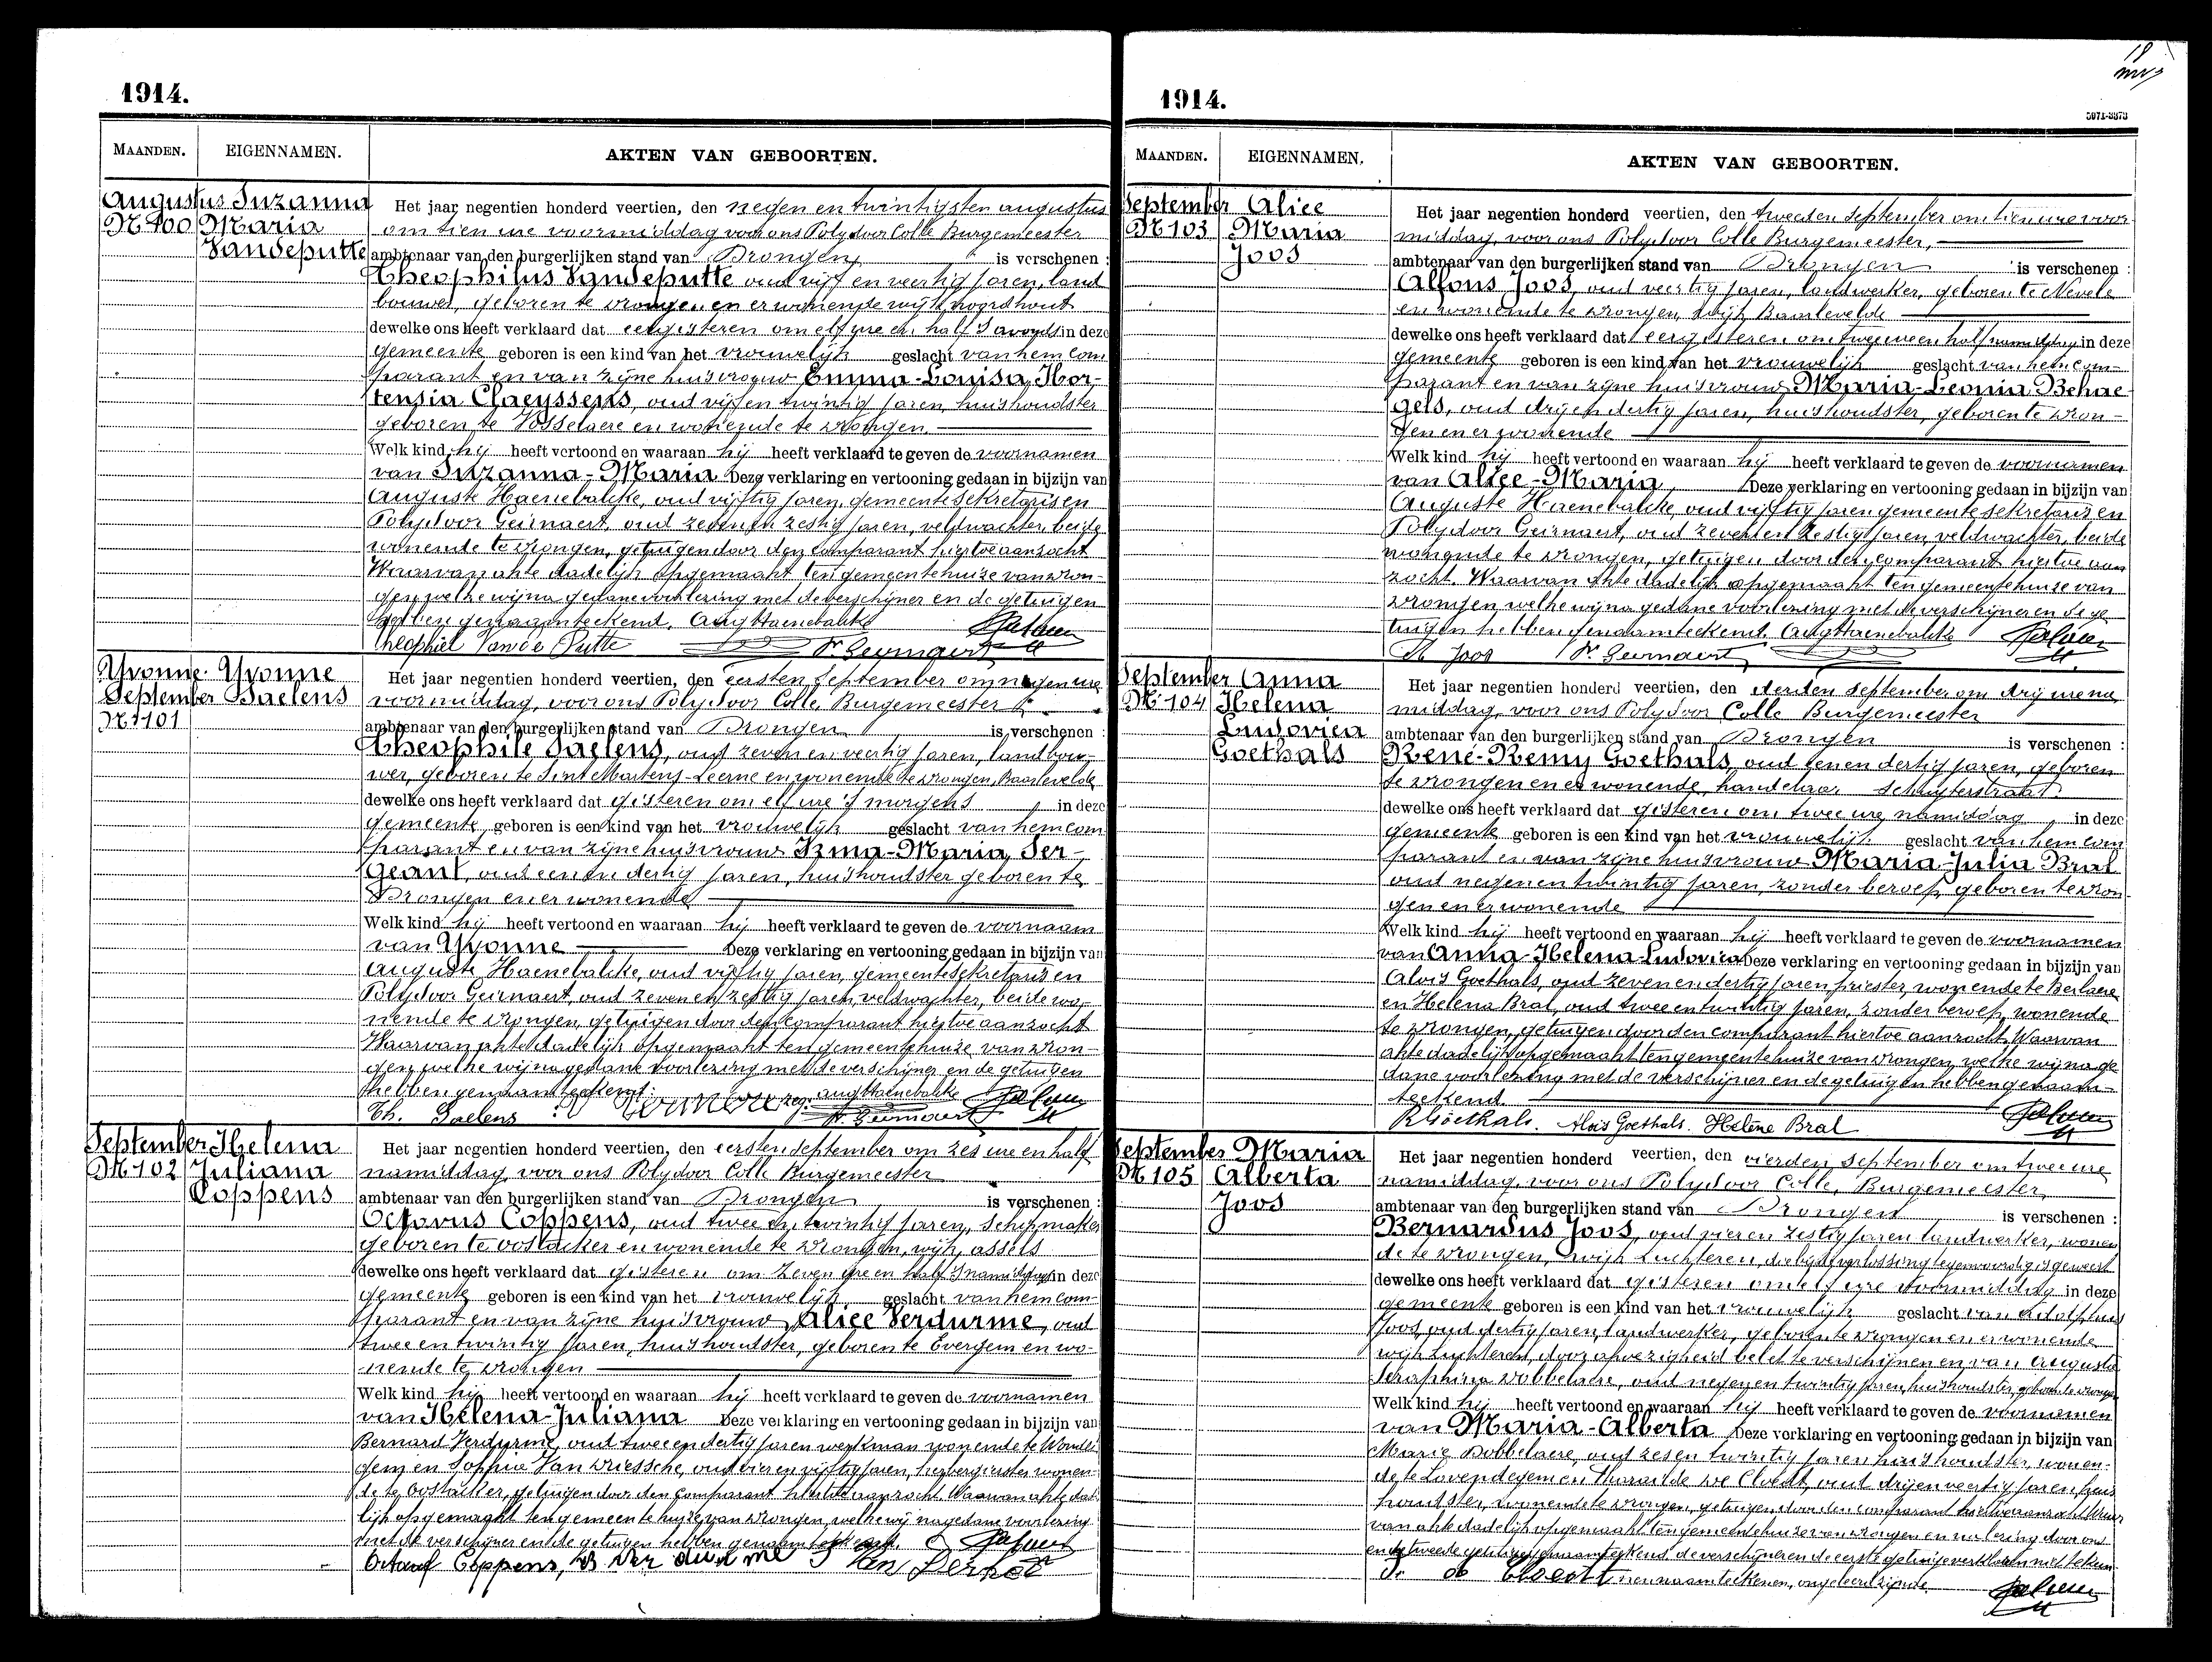 1914.
MAANDEN. EIGENNAMEN. AKTEN VAN GEBOORTEN.
Augustus Suzanna
N° 100 Maria
Vandeputte
Het jaar negentien honderd veertien, den negen en twintigsten augustus
om tien ure voormiddag voor ons Polydoor Colle Burgemeester
ambtenaar van den burgerlijken stand van Drongen is verschenen :
Theophilus Vandeputte oud vijf en veertig jaren, land
bouwer, geboren te Drongen en er wonende wijk noordhout
dewelke ons heeft verklaard dat eergisteren om elf ure en half 's avonds in deze
gemeente geboren is een kind van het vrouwelijk geslacht van hem com
parant en van zijne huisvrouw Emma-Louisa, Hor-
tensia Claeyssens, oud vijf en twintig jaren, huishoudster
geboren te Vosselaere en wonende te Drongen.
Welk kind hij heeft vertoond en waaraan hij heeft verklaard te geven de voornamen
van Suzanna-Maria Deze verklaring en vertooning gedaan in bijzijn van
Auguste Haenebalcke, oud vijftig jaren, gemeentesekretaris en
Polydoor Geirnaert, oud zeven en zestig jaren, veldwachter, beide
wonende te Drongen, getuigen door den comparant hiertoe aanzocht
Waarvan akte dadelijk opgemaakt ten gemeentehuize van Dron-
gen welke wij na gedane voorlezing met de verschijner en de getuigen
hebben genaamteekend. Aug Haenebalcke
Theophiel Van de Putte P. Geirnaert
Yvonne Yvonne
September Saelens
N° 101
Het jaar negentien honderd veertien, den eersten September om negen ure
voormiddag, voor ons Polydoor Colle, Burgemeester
ambtenaar van den burgerlijken stand van Drongen is verschenen :
Theophile Saelens, oud zeven en veertig jaren, landbou-
wer, geboren te Sint Martens-Leerne en wonende te Drongen, Baarlevelde
dewelke ons heeft verklaard dat gisteren om elf ure 's morgens in deze
gemeente geboren is een kind van het vrouwelijk geslacht van hem com
parant en van zijne huisvrouw Irma-Maria, Ser-
geant, oud een en dertig jaren, huishoudster geboren te
Drongen en er wonende
Welk kind hij heeft vertoond en waaraan hij heeft verklaard te geven de voornaam
van Yvonne Deze verklaring en vertooning gedaan in bijzijn van
Auguste Haenebalcke, oud vijftig jaren, gemeentesekretaris en
Polydoor Geirnaert, oud zeven en zestig jaren, veldwachter, beide wo
nende te Drongen, getuigen door den comparant hiertoe aanzocht
Waarvan akte dadelijk opgemaakt ten gemeentehuize van Dron-
gen welke wij na gedane voorlezing met de verschijner en de getuigen
hebben genaamteekend. Aug Haenebalcke
Th. Saelens P. Geirnaert
September Helena
N° 102 Juliana
Coppens
Het jaar negentien honderd veertien, den eersten September om zes ure en half
namiddag, voor ons Polydoor Colle Burgemeester
ambtenaar van den burgerlijken stand van Drongen is verschenen :
Octavus Coppens, oud twee en twintig jaren, schipmaker
geboren te Oostacker en wonende te Drongen, wijk assels
dewelke ons heeft verklaard dat gisteren om zeven ure en half 's namiddags in deze
gemeente geboren is een kind van het vrouwelijk geslacht van hem com-
parant en van zijne huisvrouw Alice Verdurme, oud
twee en twintig jaren, huishoudster, geboren te Evergem en wo-
nende te Drongen
Welk kind hij heeft vertoond en waaraan hij heeft verklaard te geven de voornamen
van Helena-Juliana Deze verklaring en vertooning gedaan in bijzijn van
Bernard Verdurme, oud twee en dertig jaren werkman wonende te Wondel
gem en Sophie Van Driessche, oud vier en vijftig jaren, herbergierster wonen-
de te Oostacker, getuigen door den comparant hiertoe aanzocht. Waarvan akte dade
lijk opgemaakt ten gemeentehuize van Drongen, welke wij na gedane voorlezing
met de verschijner en de getuigen hebben genaamteekend.
Octaaf Coppens, B Verdurme S Van
1914.
MAANDEN. EIGENNAMEN. AKTEN VAN GEBOORTEN.
September Alice
N° 103 Maria
Joos
Het jaar negentien honderd veertien, den tweeden September om tien ure voor
middag, voor ons Polydoor Colle Burgemeester,
ambtenaar van den burgerlijken stand van Drongen is verschenen :
Alfons Joos, oud veertig jaren, landwerker, geboren te Nevele
en wonende te Drongen, wijk Baarlevelde
dewelke ons heeft verklaard dat eergisteren om twee ure en half namiddag in deze
gemeente geboren is een kind van het vrouwelijk geslacht van hem com-
parant en van zijne huisvrouw Maria-Leonia Behae-
gels, oud drij en dertig jaren, huishoudster, geboren te Dron-
gen en er wonende
Welk kind hij heeft vertoond en waaraan hij heeft verklaard te geven de voornamen
van Alice-Maria Deze verklaring en vertooning gedaan in bijzijn van
Auguste Haenebalcke, oud vijftig jaren gemeentesekretaris en
Polydoor Geirnaert, oud zeven en zestig jaren, veldwachter, beide
wonende te Drongen, getuigen door den comparant hiertoe aan
zocht. Waarvan akte dadelijk opgemaakt ten gemeentehuize van
Drongen welke wij na gedane voorlezing met de verschijner en de ge
tuigen hebben genaamteekend. Aug Haenebalcke
A Joos P. Geirnaert
September Anna
N° 104 Helena
Ludovica
Goethals
Het jaar negentien honderd veertien, den derden September om drij ure na
middag, voor ons Polydoor Colle Burgemeester
ambtenaar van den burgerlijken stand van Drongen is verschenen :
René-Remy Goethals, oud een en dertig jaren, geboren
te Drongen en er wonende, handelaar Schuyterstraat.
dewelke ons heeft verklaard dat gisteren om twee ure namiddag in deze
gemeente geboren is een kind van het vrouwelijk geslacht van hem com
parant en van zijne huisvrouw Maria-Julia Bral
oud negen en twintig jaren, zonder beroep, geboren te Dron
gen en er wonende
Welk kind hij heeft vertoond en waaraan hij heeft verklaard te geven de voornamen
van Anna-Helena-Ludovica Deze verklaring en vertooning gedaan in bijzijn van
Aloïs Goethals, oud zeven en dertig jaren priester, wonende te Berlaere
en Helena Bral, oud twee en twintig jaren, zonder beroep, wonende
te Drongen, getuigen door den comparant hiertoe aanzocht. Waarvan
akte dadelijk opgemaakt ten gemeentehuize van Drongen, welke wij na ge
dane voorlezing met de verschijner en de getuigen hebben genaam-
teekend.
R Goethals. Aloïs Goethals. Helène Bral
September Maria
N° 105 Alberta
Joos
Het jaar negentien honderd veertien, den vierden September om twee ure
namiddag, voor ons Polydoor Colle, Burgemeester,
ambtenaar van den burgerlijken stand van Drongen is verschenen :
Bernardus Joos, oud vier en zestig jaren landwerker, wonen
de te Drongen, wijk Luchteren, die bij de verlossing tegenwoordig is geweest
dewelke ons heeft verklaard dat gisteren om elf ure voormiddag in deze
gemeente geboren is een kind van het vrouwelijk geslacht van Adolphus
Joos, oud dertig jaren, landwerker, geboren te Drongen en er wonende
wijk Luchteren, door afwezigheid belet te verschijnen en van Augusta
Seraphina Dobbelaere, oud negen en twintig jaren, huishoudster, geboren te Drongen
Welk kind hij heeft vertoond en waaraan hij heeft verklaard te geven de voornamen
van Maria-Alberta Deze verklaring en vertooning gedaan in bijzijn van
Marie Dobbelaere, oud zes en twintig jaren huishoudster, wonen-
de te Lovendegem en Tharsilde De Cloedt, oud drij en veertig jaren, huis
houdster, wonende te Drongen, getuigen door den comparant hiertoe aanzocht. Waar
van akte dadelijk opgemaakt ten gemeentehuize van Drongen en na lezing door ons
en de tweede getuige genaamteekend, de verschijner en de eerste getuige verklaren niet te kun
nen naamteekenen, ongeleerd zijnde